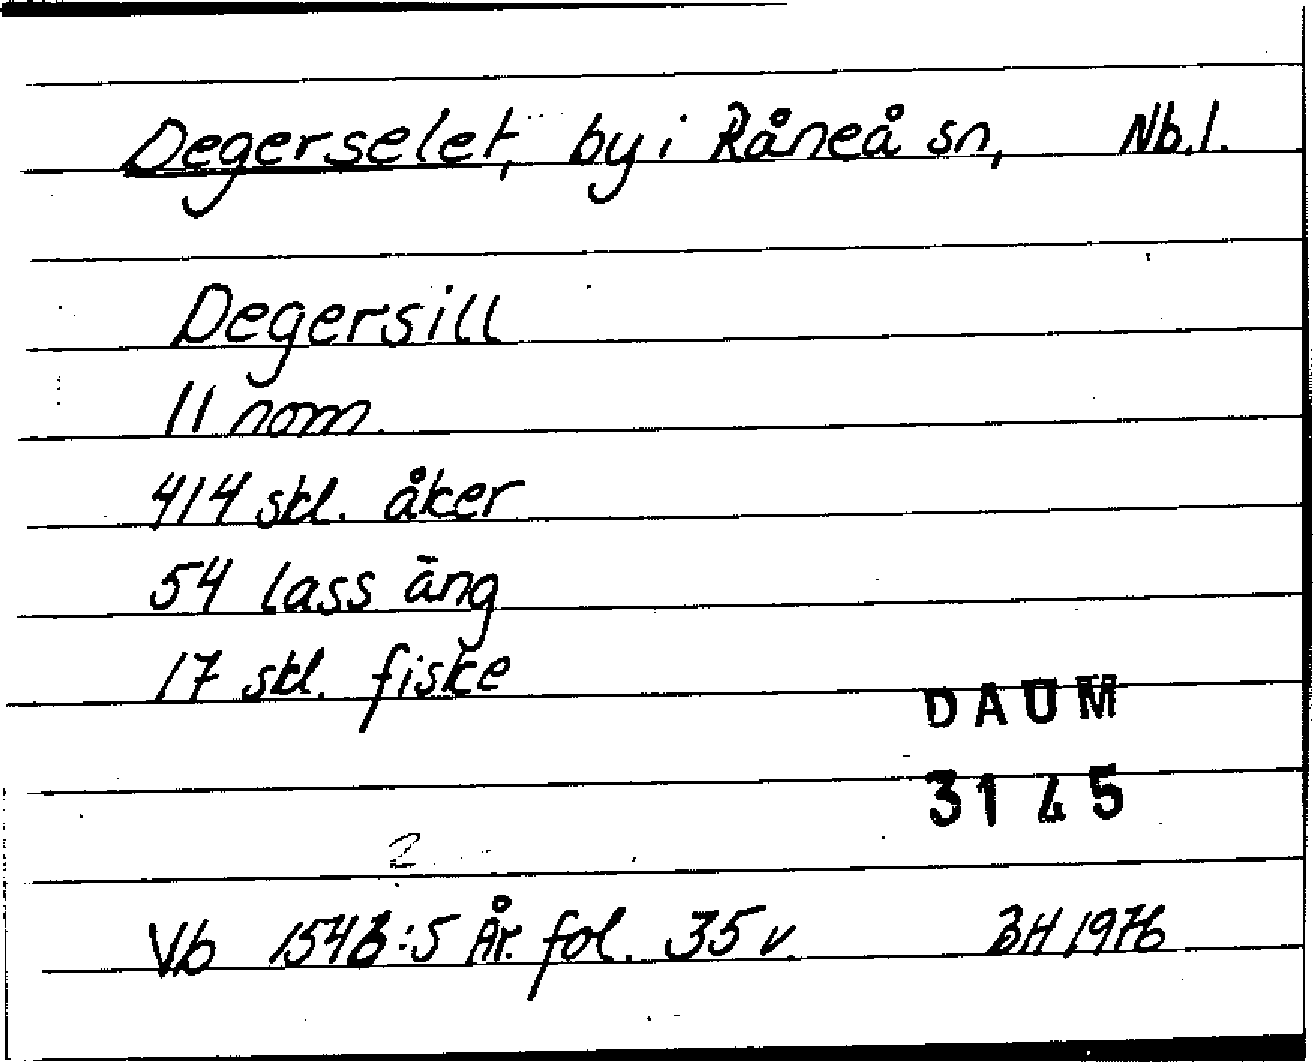 Degerselet, by i Råneå sn, Nb.l.
Degersill
11 nom.
414 skl. åker
54 lass äng
17 skl. fiske
DAUM
3145
2
Vb 1543:5 År. fol. 35 v. BH 1976